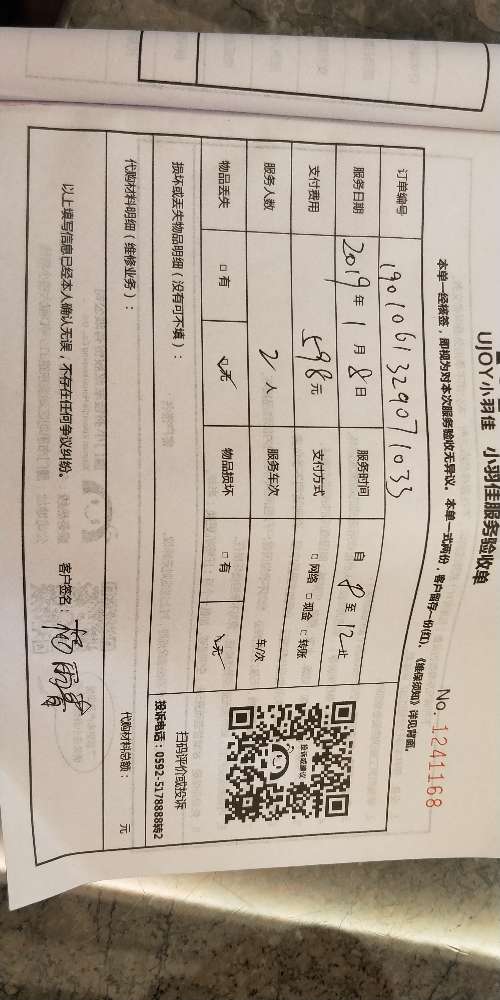 UJOY小羽佳 小羽佳服务验收单
No. 1241168
本单一经核签，即视为对本次服务验收无异议。本单一式两份，客户留存一份(红)。《维保须知》详见背面。
订单编号 1901061329071033
服务日期 2019年1月8日 服务时间 自8至12止
支付费用 598元 支付方式 □网络 □现金 □转账
服务人数 2人 服务车次 车/次
物品丢失 □有 □无 物品损坏 □有 □无
扫码评价或投诉
投诉电话：0592-5178888转2
损坏或丢失物品明细（没有可不填）：
代购材料明细（维修业务）： 代购材料总额： 元
以上填写信息已经本人确认无误，不存在任何争议纠纷。 客户签名：
投诉或建议